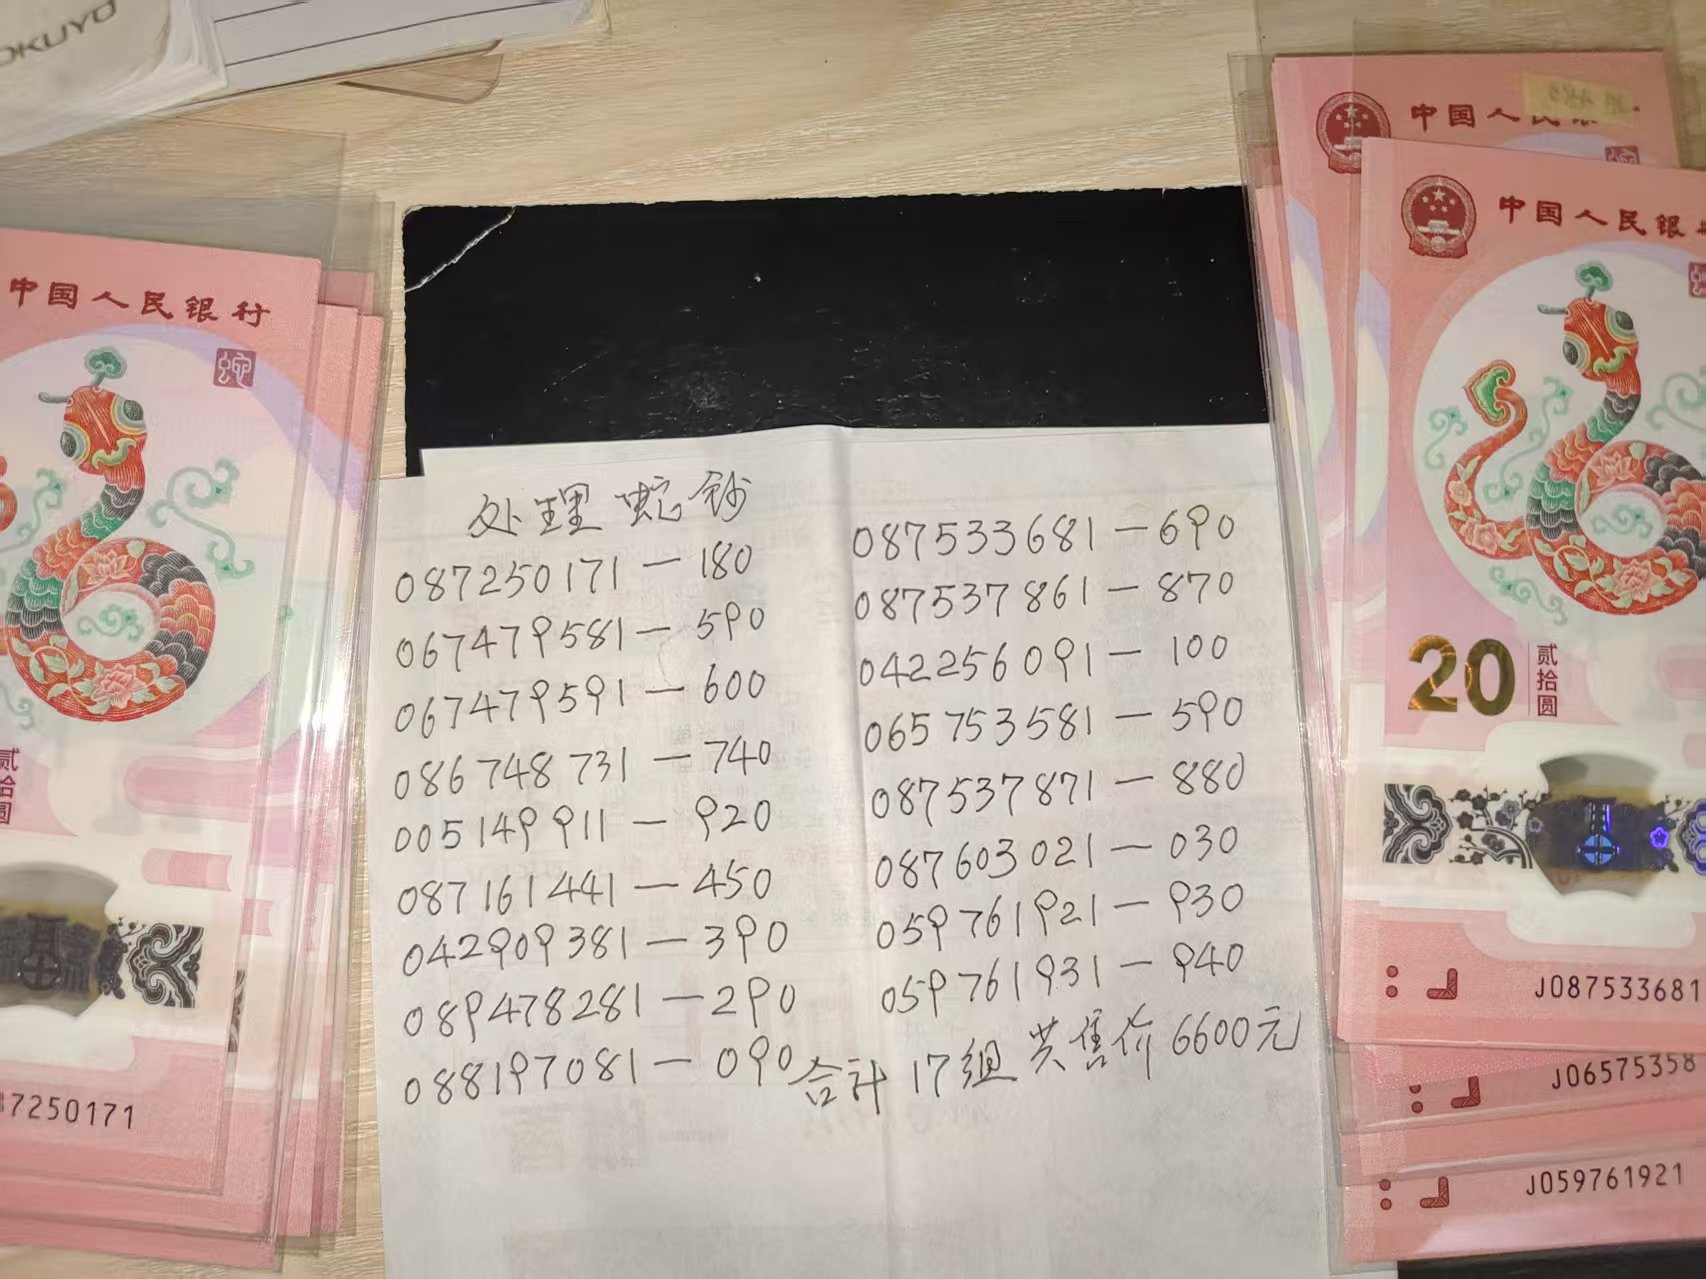 OKUYO
中国人民银行
蛇
贰拾圆
7250171
处理蛇钞
087250171－180
067479581－590
067479591－600
086748731－740
005149911－920
087161441－450
042909381－390
089478281－290
088197081－090
087533681－690
087537861－870
042256091－100
065753581－590
087537871－880
087603021－030
059761921－930
059761931－940
合计17组共售价6600元
中国人民
中国人民银
20
贰拾圆
J087533681
J06575358
J059761921